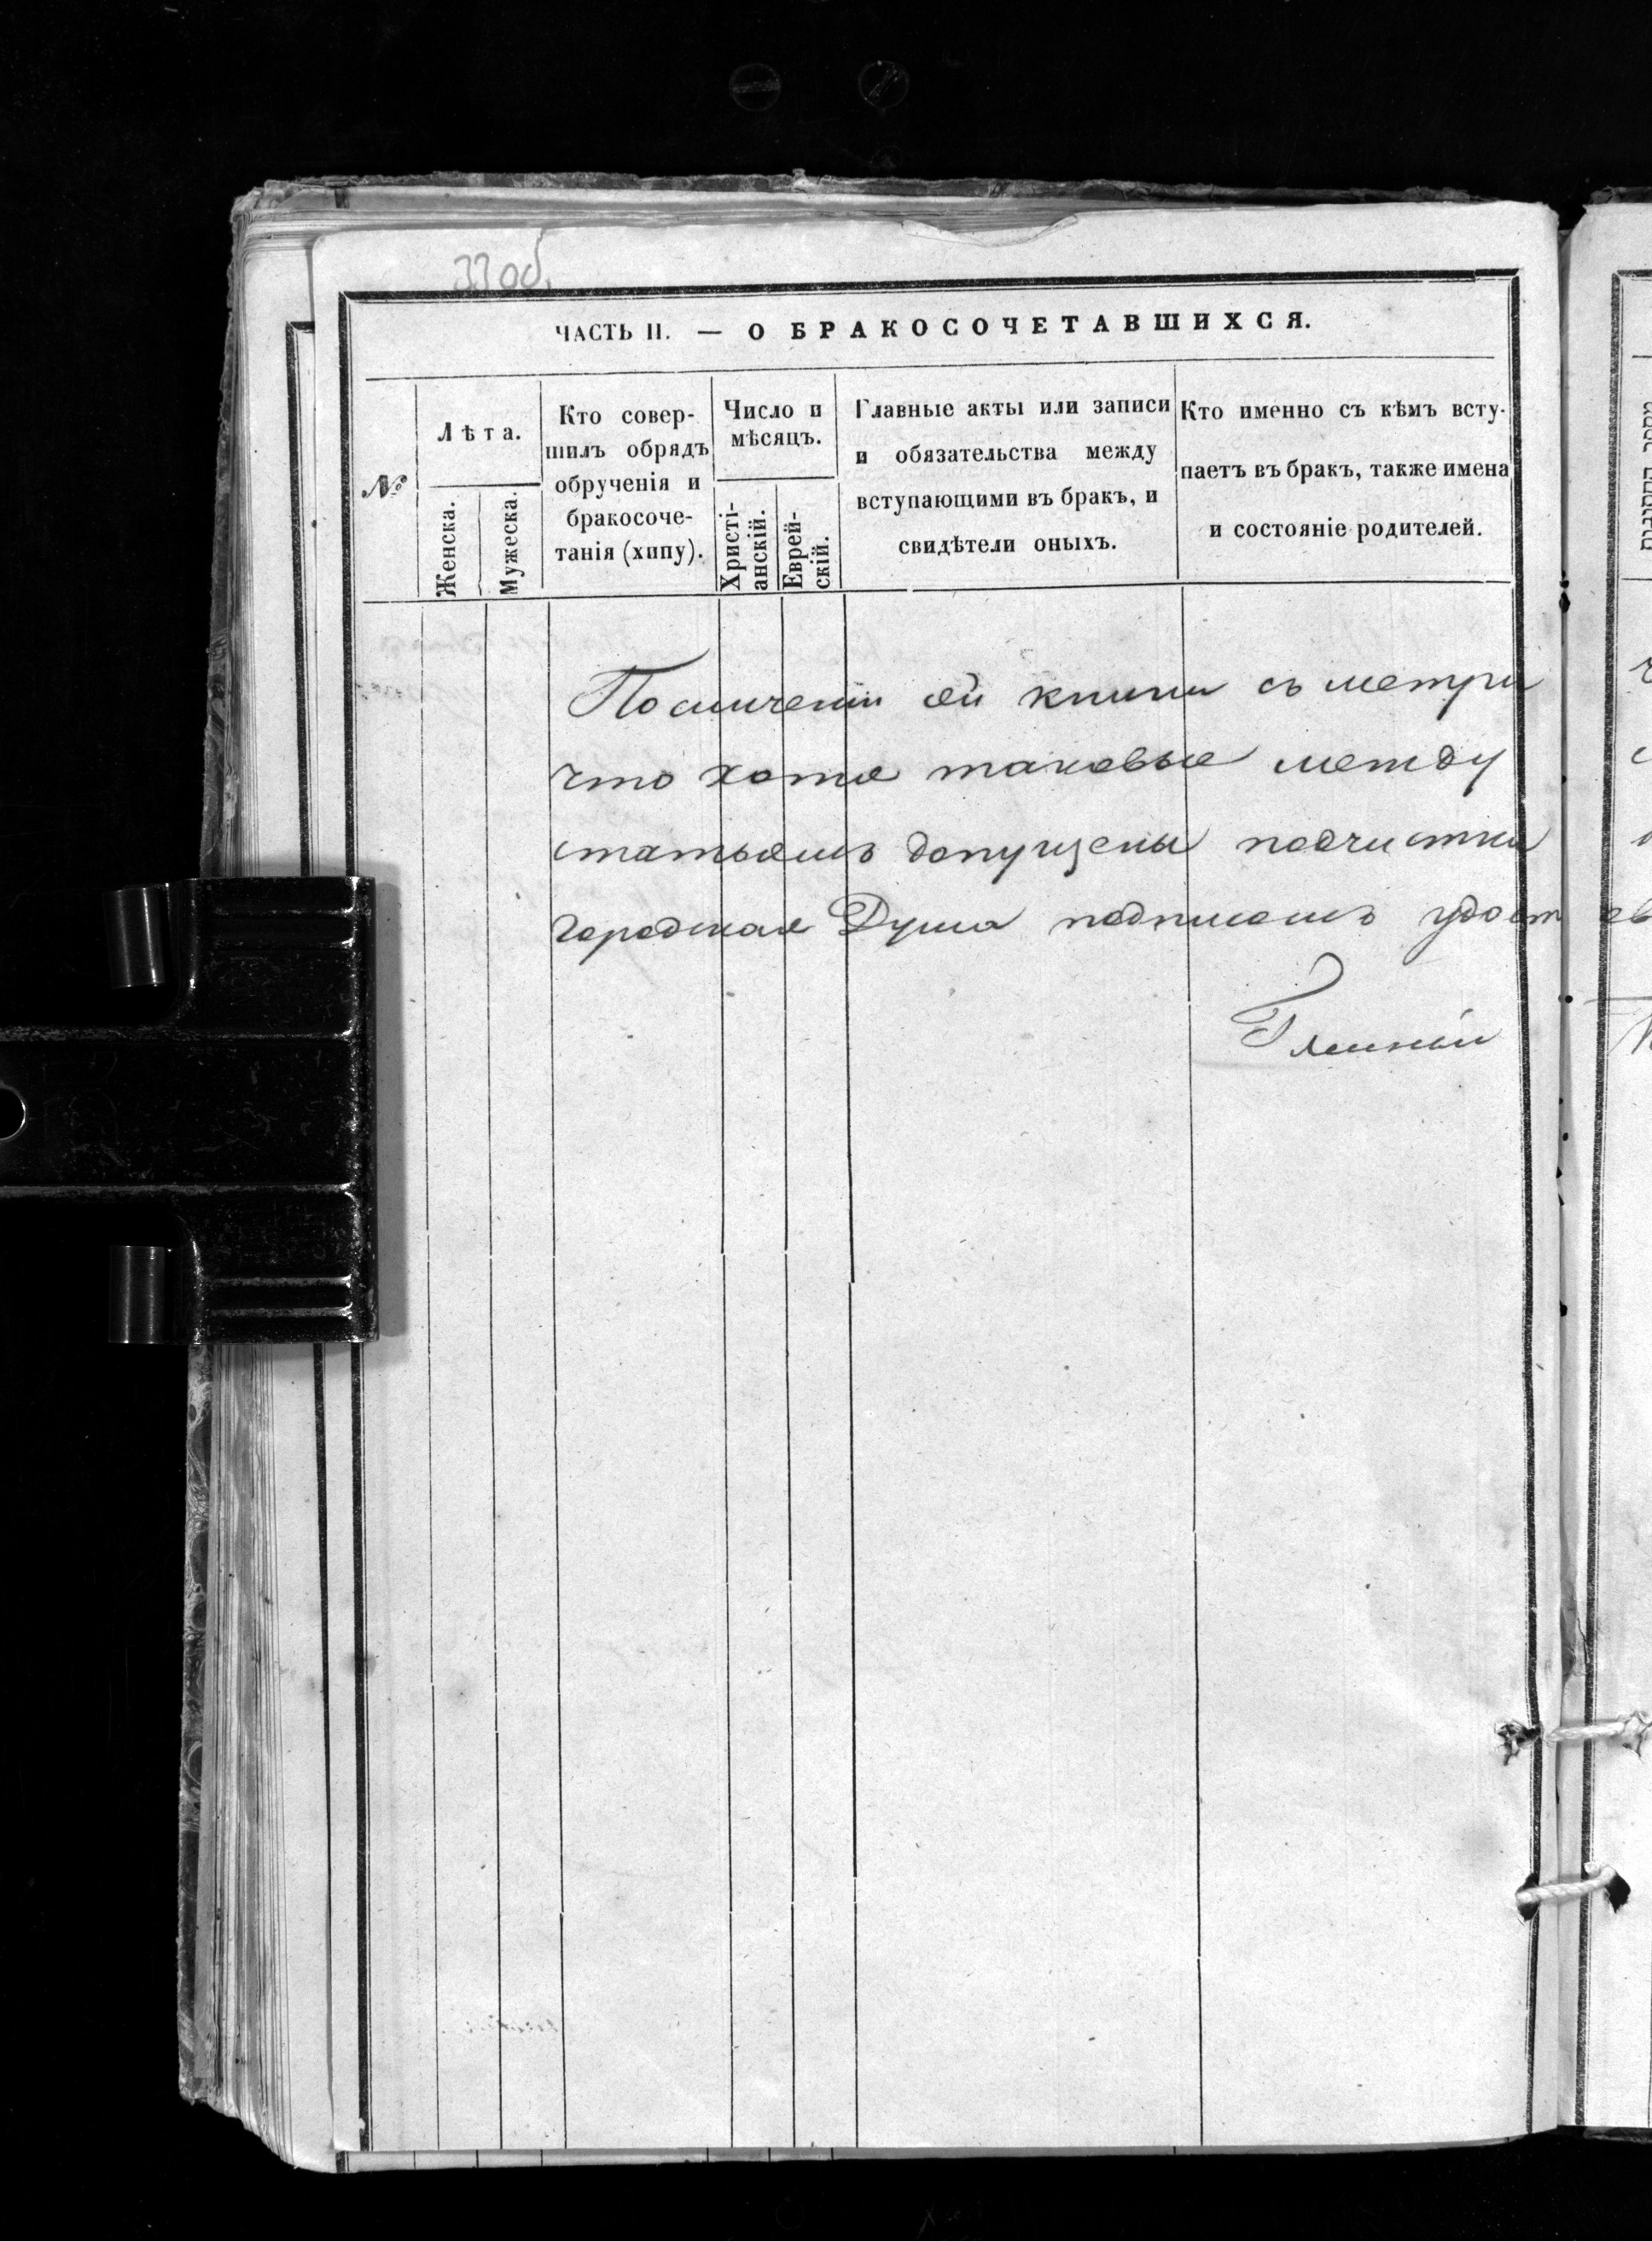 33 об.
ЧАСТЬ II. — О БРАКОСОЧЕТАВШИХСЯ.
№
Лѣта.
Женска.
Мужеска.
Кто совер-
шилъ обрядъ
обрученія и
бракосоче-
танія (хипу).
Число и
мѣсяцъ.
Христі-
анскій.
Еврей-
скій.
Главные акты или записи
и обязательства между
вступающими въ бракъ, и
свидѣтели оныхъ.
Кто именно съ кѣмъ всту-
паетъ въ бракъ, также имена
и состояніе родителей.
По сличеніи сей книги съ метри
что хотя таковые между
статьями допущены подчистки
городская Дума подписомъ удост